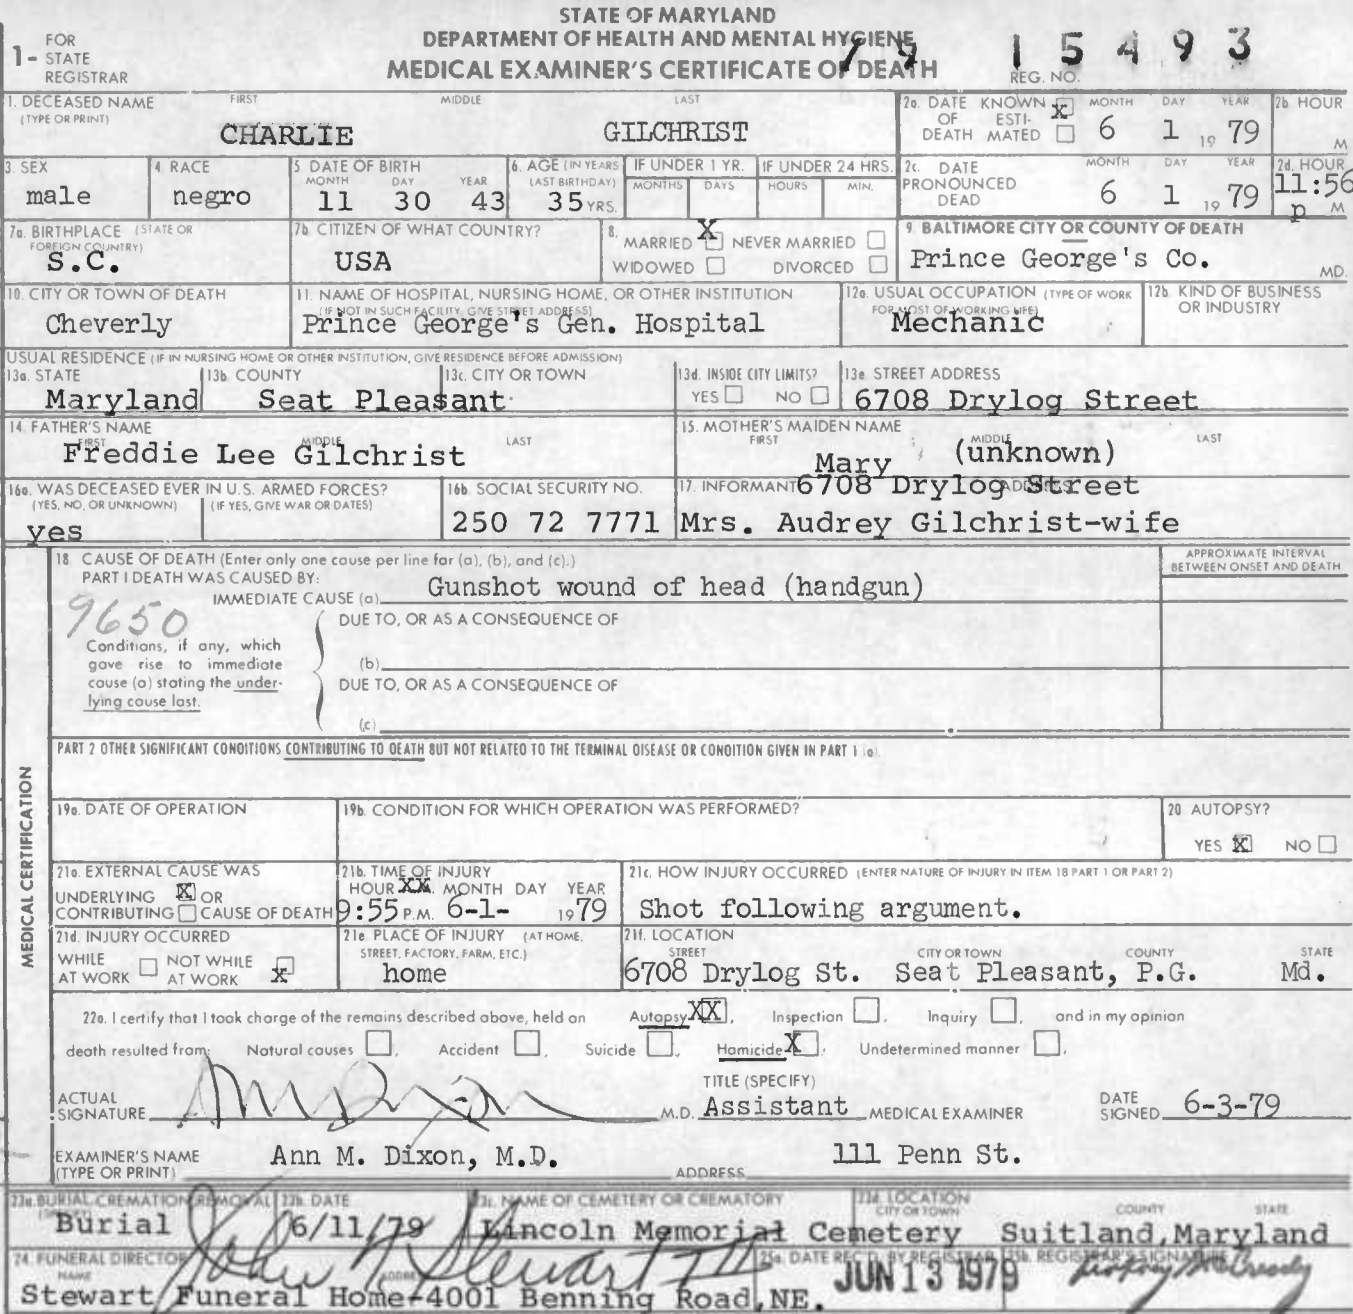 STATE OF MARYLAND
DEPARTMENT OF HEALTH AND MENTAL HYGIENE
MEDICAL EXAMINER'S CERTIFICATE OF DEATH
1- FOR STATE REGISTRAR
79 15493
REG. NO.
1. DECEASED NAME (TYPE OR PRINT) FIRST MIDDLE LAST
CHARLIE GILCHRIST
2a. DATE OF DEATH KNOWN X ESTIMATED MONTH DAY YEAR
6 1 19 79
2b HOUR M
3. SEX
male
4 RACE
negro
5 DATE OF BIRTH MONTH DAY YEAR
11 30 43
6. AGE (IN YEARS LAST BIRTHDAY)
35 YRS.
IF UNDER 1 YR. MONTHS DAYS
IF UNDER 24 HRS. HOURS MIN.
2c. DATE PRONOUNCED DEAD MONTH DAY YEAR
6 1 19 79
2d. HOUR
11:56 p M
7a. BIRTHPLACE (STATE OR FOREIGN COUNTRY)
S.C.
7b. CITIZEN OF WHAT COUNTRY?
USA
8. MARRIED X NEVER MARRIED
WIDOWED DIVORCED
9. BALTIMORE CITY OR COUNTY OF DEATH
Prince George's Co. MD.
10. CITY OR TOWN OF DEATH
Cheverly
11. NAME OF HOSPITAL, NURSING HOME, OR OTHER INSTITUTION
(IF NOT IN SUCH FACILITY, GIVE STREET ADDRESS)
Prince George's Gen. Hospital
12a. USUAL OCCUPATION (TYPE OF WORK FOR MOST OF WORKING LIFE)
Mechanic
12b. KIND OF BUSINESS OR INDUSTRY
USUAL RESIDENCE (IF IN NURSING HOME OR OTHER INSTITUTION, GIVE RESIDENCE BEFORE ADMISSION)
13a. STATE 13b COUNTY 13c. CITY OR TOWN 13d. INSIDE CITY LIMITS? 13e STREET ADDRESS
Maryland Seat Pleasant YES NO 6708 Drylog Street
14 FATHER'S NAME FIRST MIDDLE LAST
Freddie Lee Gilchrist
15. MOTHER'S MAIDEN NAME FIRST MIDDLE LAST
Mary (unknown)
16a. WAS DECEASED EVER IN U.S. ARMED FORCES?
(YES, NO, OR UNKNOWN) (IF YES, GIVE WAR OR DATES)
yes
16b SOCIAL SECURITY NO.
250 72 7771
17. INFORMANT ADDRESS
6708 Drylog Street
Mrs. Audrey Gilchrist-wife
MEDICAL CERTIFICATION
18. CAUSE OF DEATH (Enter only one cause per line for (a), (b), and (c).)
PART I DEATH WAS CAUSED BY:
IMMEDIATE CAUSE (a) Gunshot wound of head (handgun)
APPROXIMATE INTERVAL BETWEEN ONSET AND DEATH
9650
DUE TO, OR AS A CONSEQUENCE OF
Conditions, if any, which gave rise to immediate cause (a) stating the underlying cause last.
(b)
DUE TO, OR AS A CONSEQUENCE OF
(c)
PART 2 OTHER SIGNIFICANT CONDITIONS CONTRIBUTING TO DEATH BUT NOT RELATED TO THE TERMINAL DISEASE OR CONDITION GIVEN IN PART 1 (a).
19a. DATE OF OPERATION
19b. CONDITION FOR WHICH OPERATION WAS PERFORMED?
20 AUTOPSY?
YES X NO
21a. EXTERNAL CAUSE WAS
UNDERLYING X OR
CONTRIBUTING CAUSE OF DEATH
21b. TIME OF INJURY
HOUR XX. MONTH DAY YEAR
9:55 P.M. 6-1- 19 79
21c. HOW INJURY OCCURRED (ENTER NATURE OF INJURY IN ITEM 18 PART 1 OR PART 2)
Shot following argument.
21d. INJURY OCCURRED
WHILE AT WORK NOT WHILE AT WORK X
21e PLACE OF INJURY (AT HOME, STREET, FACTORY, FARM, ETC.)
home
21f. LOCATION
STREET CITY OR TOWN COUNTY STATE
6708 Drylog St. Seat Pleasant, P.G. Md.
22a. I certify that I took charge of the remains described above, held an Autopsy XX, Inspection, Inquiry, and in my opinion
death resulted from: Natural causes, Accident, Suicide, Homicide X, Undetermined manner,
ACTUAL SIGNATURE M.D.
TITLE (SPECIFY)
Assistant MEDICAL EXAMINER
DATE SIGNED 6-3-79
EXAMINER'S NAME (TYPE OR PRINT) Ann M. Dixon, M.D. ADDRESS 111 Penn St.
23a. BURIAL, CREMATION, REMOVAL 23b. DATE 23c. NAME OF CEMETERY OR CREMATORY 23d. LOCATION CITY OR TOWN COUNTY STATE
Burial 6/11/79 Lincoln Memorial Cemetery Suitland, Maryland
John N Stewart III
24. FUNERAL DIRECTOR NAME ADDRESS 25a. DATE REC'D. BY REGISTRAR 25b. REGISTRAR'S SIGNATURE
JUN 13 1979
Stewart Funeral Home-4001 Benning Road, NE.